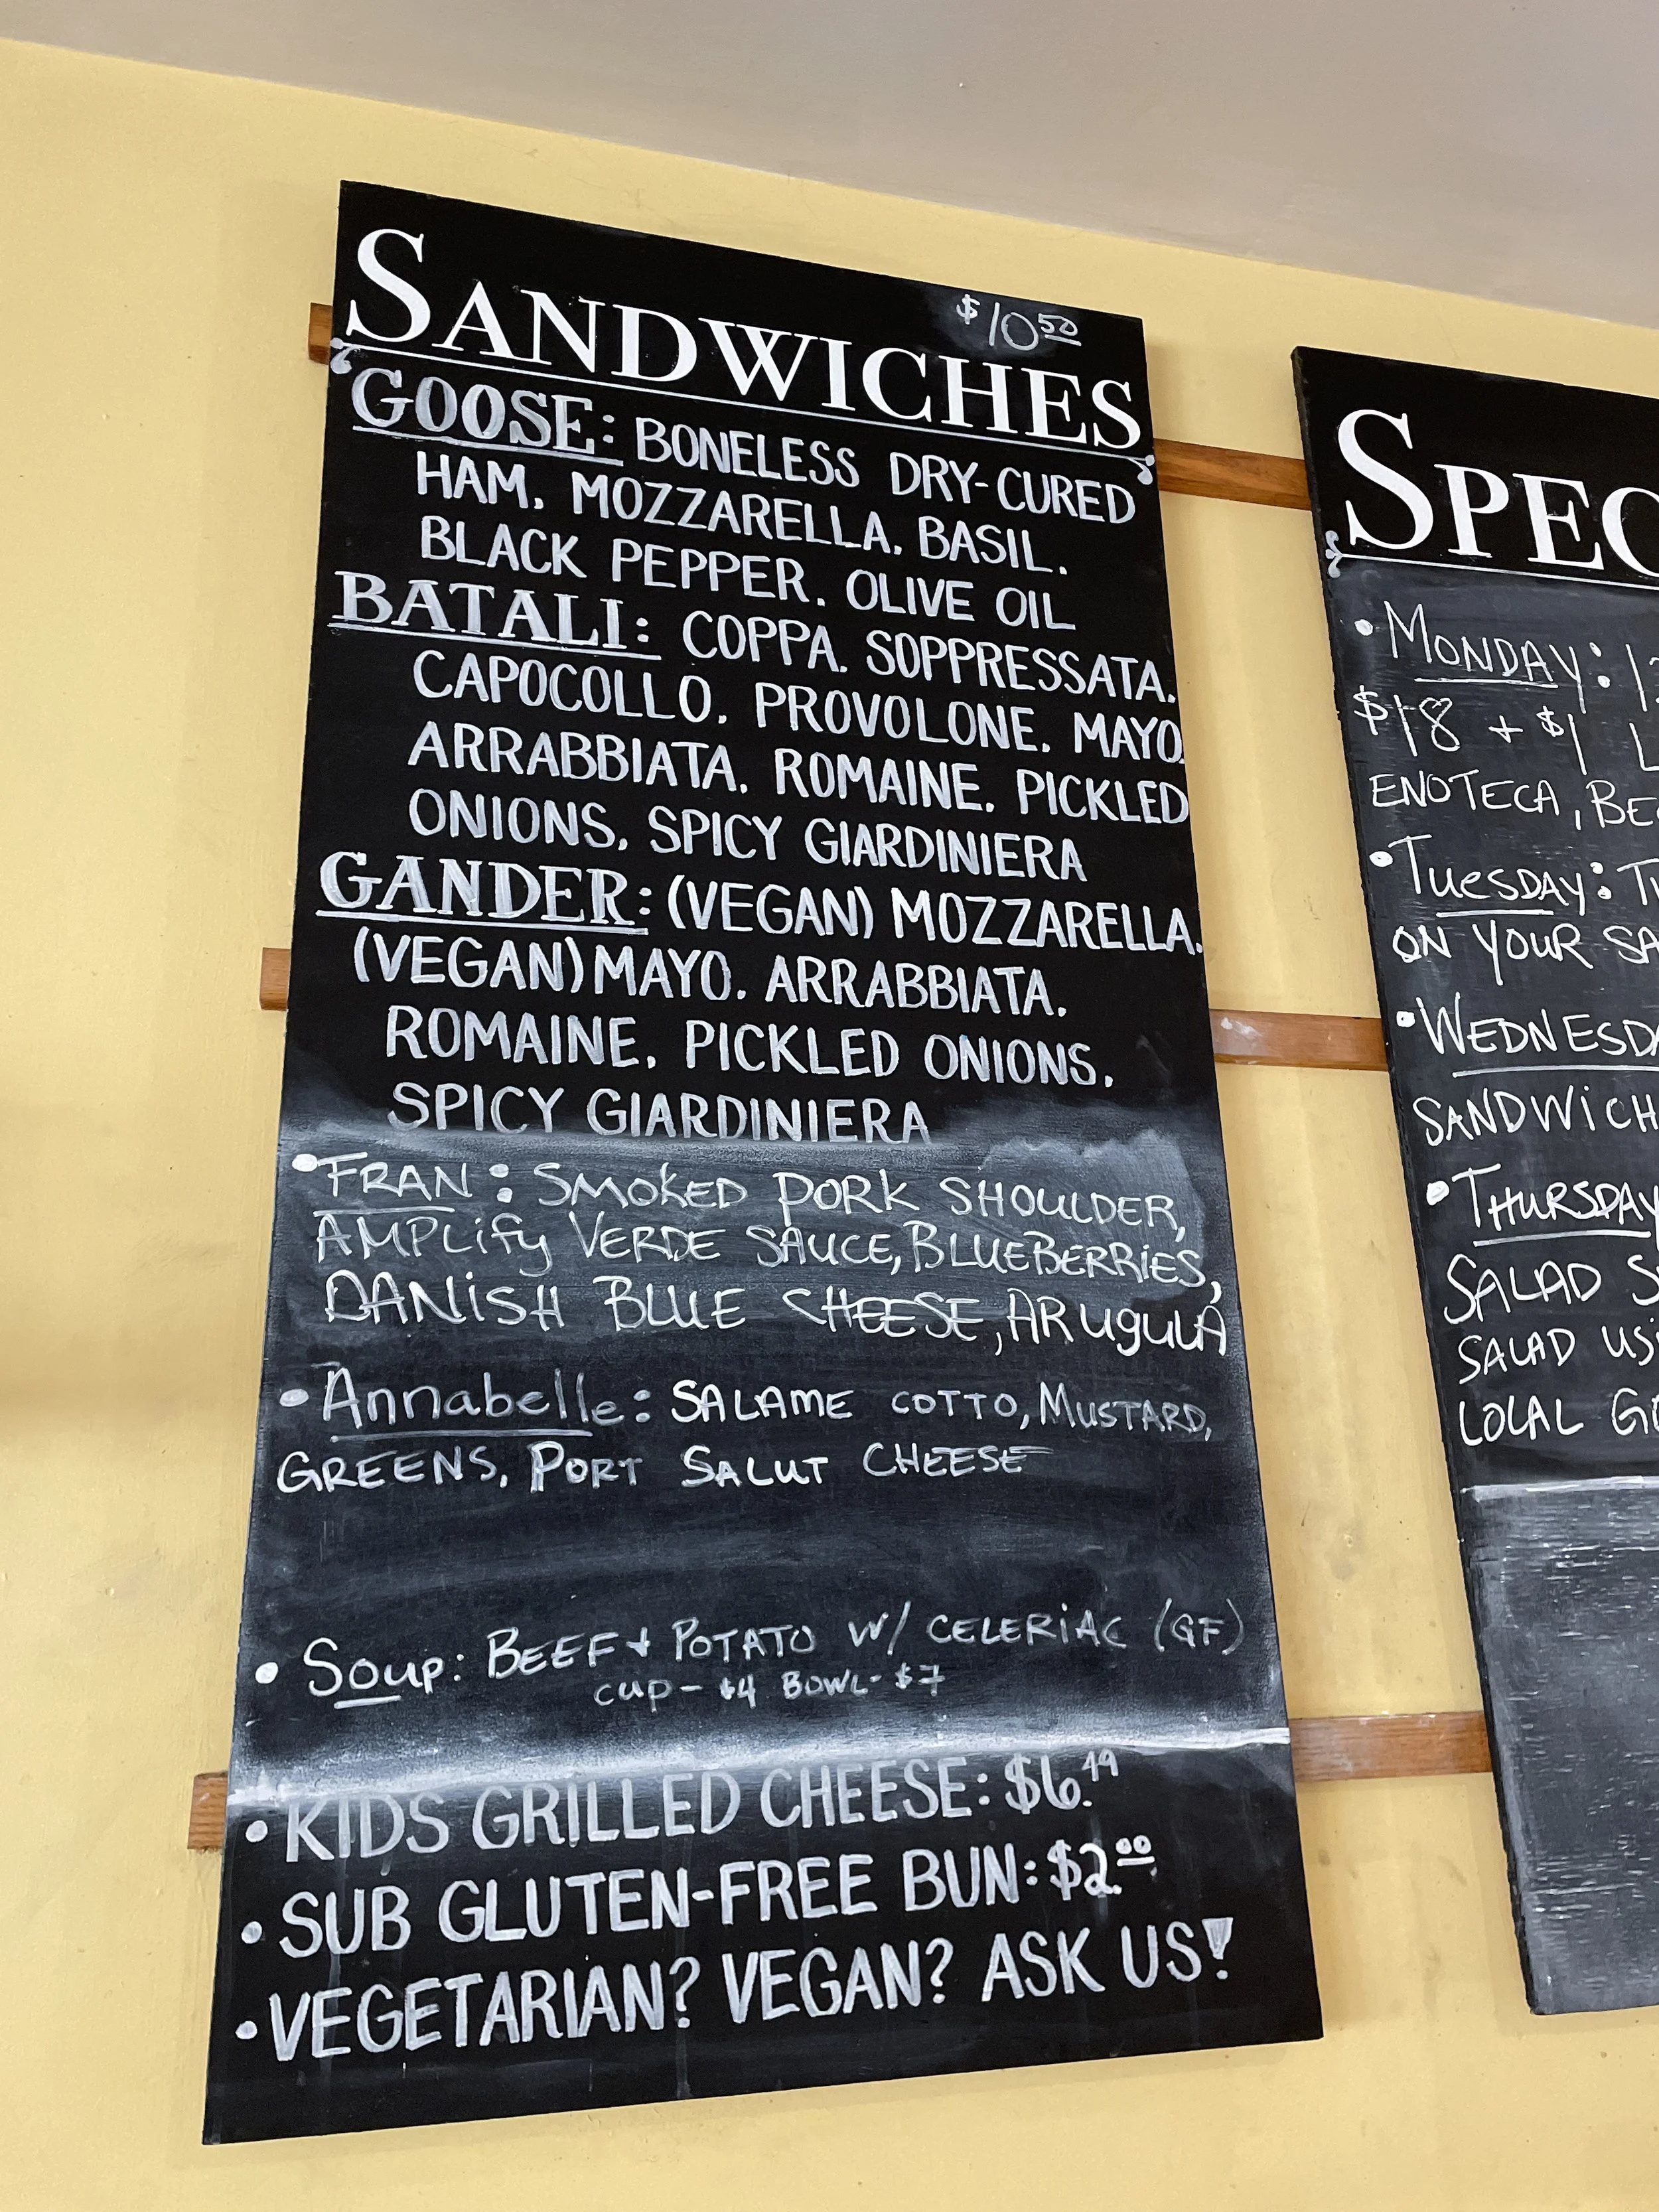 SANDWICHES $10.50
GOOSE: BONELESS DRY-CURED
HAM, MOZZARELLA, BASIL,
BLACK PEPPER, OLIVE OIL
BATALI: COPPA, SOPPRESSATA,
CAPOCOLLO, PROVOLONE, MAYO,
ARRABBIATA, ROMAINE, PICKLED
ONIONS, SPICY GIARDINIERA
GANDER: (VEGAN) MOZZARELLA,
(VEGAN) MAYO, ARRABBIATA,
ROMAINE, PICKLED ONIONS,
SPICY GIARDINIERA
• FRAN: SMOKED PORK SHOULDER,
AMPLify VERDE SAUCE, BLUEBERRIES,
DANiSH BLUE CHEESE, ARugulA
• Annabelle: SALAME COTTO, MUSTARD,
GREENS, PORT SALUT CHEESE
• Soup: BEEF + POTATO W/ CELERiAC (GF)
cup - $4 BOWL - $7
• KIDS GRILLED CHEESE: $6.49
• SUB GLUTEN-FREE BUN: $2.00
• VEGETARIAN? VEGAN? ASK US!
SPEC
• MONDAY:
$18 + $1
ENOTECA,
• TUESDAY:
ON YOUR
• WEDNESDA
SANDWiCH
• THURSDAY
SALAD
SALAD
LOCAL